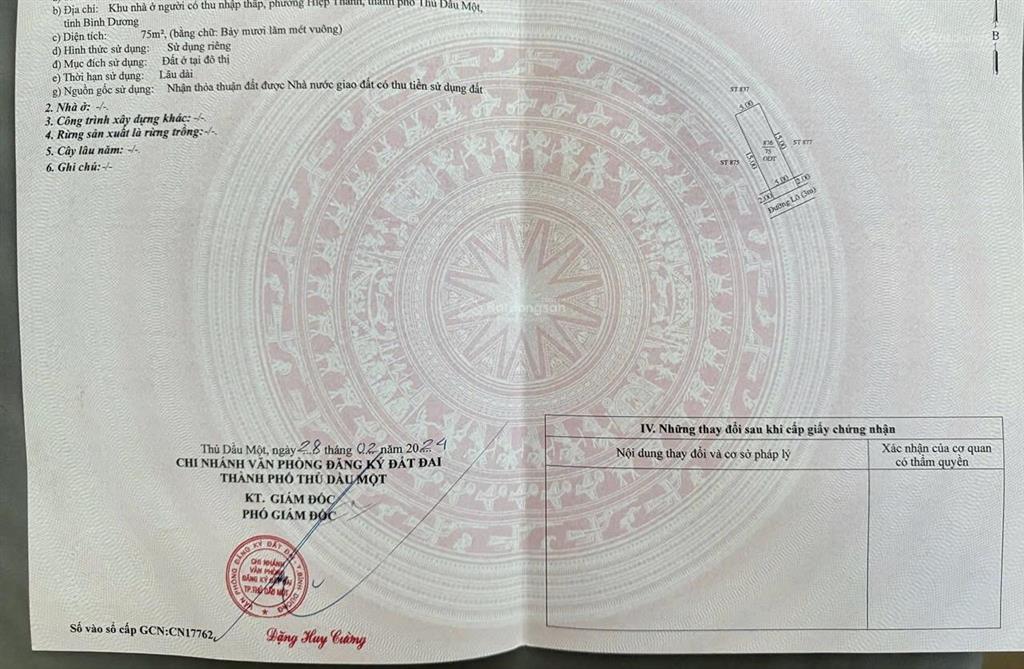 b) Địa chỉ: Khu nhà ở người có thu nhập thấp, phường Hiệp Thành, thành phố Thủ Dầu Một,
tỉnh Bình Dương
c) Diện tích: 75m², (bằng chữ: Bảy mươi lăm mét vuông)
d) Hình thức sử dụng: Sử dụng riêng
đ) Mục đích sử dụng: Đất ở tại đô thị
e) Thời hạn sử dụng: Lâu dài
g) Nguồn gốc sử dụng: Nhận thỏa thuận đất được Nhà nước giao đất có thu tiền sử dụng đất
2. Nhà ở: -/-
3. Công trình xây dựng khác: -/-
4. Rừng sản xuất là rừng trồng:-/-
5. Cây lâu năm: -/-
6. Ghi chú:-/-
B
ST 837
5.00
15.00
ST 877
836
75
ODT
ST 875
15.00
5.00
2.00
2.00
Đường Lô (3m)
batdongsan
Thủ Dầu Một, ngày 28 tháng 02 năm 2024
CHI NHÁNH VĂN PHÒNG ĐĂNG KÝ ĐẤT ĐAI
THÀNH PHỐ THỦ DẦU MỘT
KT. GIÁM ĐỐC
PHÓ GIÁM ĐỐC
VĂN PHÒNG ĐĂNG KÝ ĐẤT ĐAI - T.BÌNH DƯƠNG
CHI NHÁNH
VĂN PHÒNG
ĐĂNG KÝ ĐẤT ĐAI
TP.THỦ DẦU MỘT
Số vào sổ cấp GCN:CN17762
Đặng Huy Cường
IV. Những thay đổi sau khi cấp giấy chứng nhận
Nội dung thay đổi và cơ sở pháp lý
Xác nhận của cơ quan
có thẩm quyền